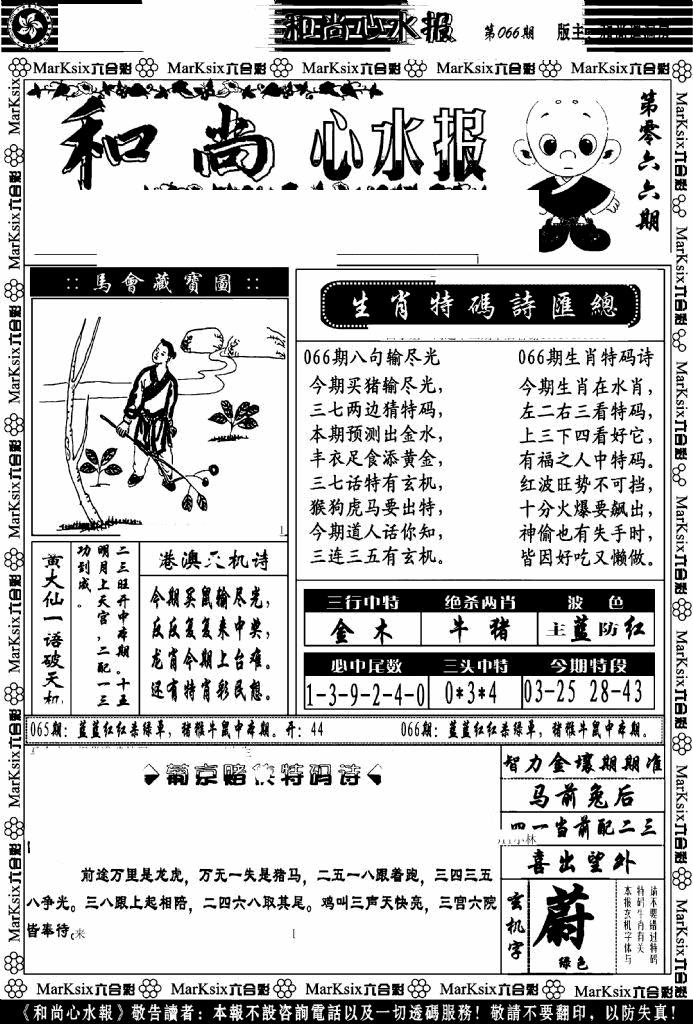 和尚心水报
第066期
版主:
MarKsix六合彩 MarKsix六合彩 MarKsix六合彩 MarKsix六合彩 MarKsix六合彩
和尚心水报
第零六六期
::馬會藏寶圖::
生肖特碼詩匯總
066期八句输尽光
今期买猪输尽光,
三七两边猜特码,
本期预测出金水,
丰衣足食添黄金,
三七话特有玄机,
猴狗虎马要出特,
今期道人话你知,
三连三五有玄机。
066期生肖特码诗
今期生肖在水肖,
左二右三看特码,
上三下四看好它,
有福之人中特码。
红波旺势不可挡,
十分火爆要飙出,
神偷也有失手时,
皆因好吃又懒做。
黄大仙一语破天机
二三旺开中本期。十五
明月上天宫,二配一三
功到成。
港澳天机诗
今期买鼠输尽光,
反反复复来中奖,
龙肖今期上台难。
还有特肖彩民想。
三行中特 绝杀两肖 波色
金木 牛猪 主蓝防红
必中尾数 三头中特 今期特段
1-3-9-2-4-0 0*3*4 03-25 28-43
065期: 蓝蓝红红杀绿单, 猪猴牛鼠中本期。开: 44
066期: 蓝蓝红红杀绿单, 猪猴牛鼠中本期。
葡京赌侠特码诗
前途万里是龙虎, 万无一失是猪马, 二五一八跟着跑, 三四三五
八争光。三八跟上起相陪, 二四六八取其尾。鸡叫三声天快亮, 三宫六院
皆奉待。
智力金壤期期准
马前兔后
四一当前配二三
喜出望外
玄机字
蔚
绿色
请不要错过特码
特码生肖有关
本报玄机字体与
MarKsix六合彩 MarKsix六合彩 MarKsix六合彩 MarKsix六合彩 MarKsix六合彩
《和尚心水報》敬告讀者:本報不設咨詢電話以及一切透碼服務!敬請不要翻印,以防失真!